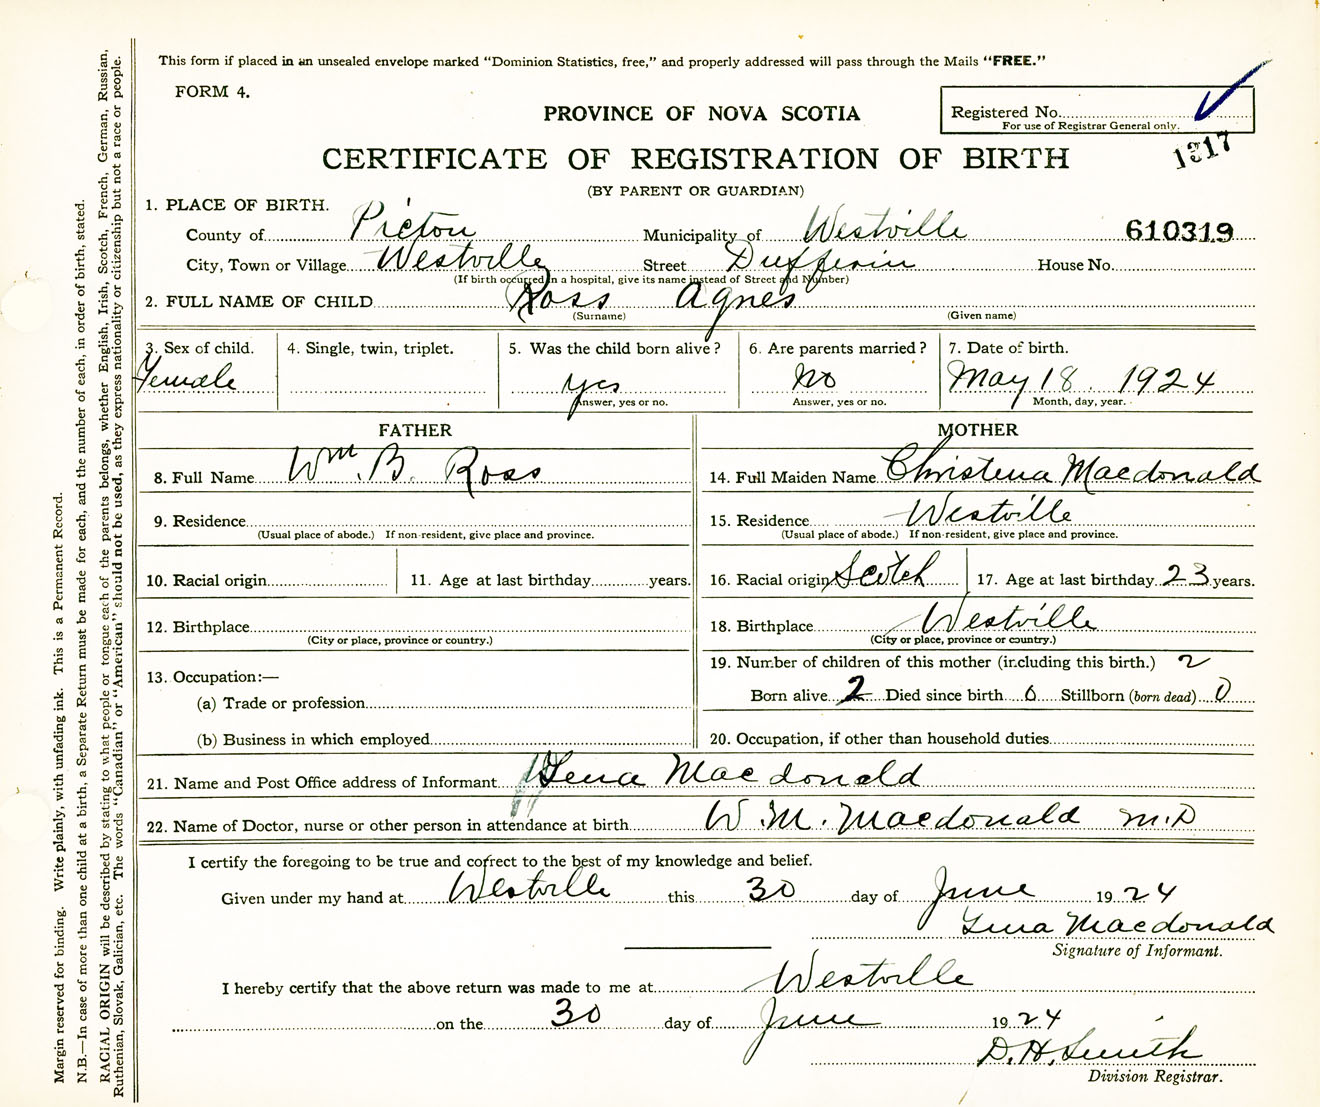 This form if placed in an unsealed envelope marked "Dominion Statistics, free," and properly addressed will pass through the Mails "FREE."
FORM 4.
PROVINCE OF NOVA SCOTIA
Registered No.
For use of Registrar General only.
1317
CERTIFICATE OF REGISTRATION OF BIRTH
(BY PARENT OR GUARDIAN)
1. PLACE OF BIRTH.
County of Pictou Municipality of Westville 610319
City, Town or Village Westville Street Dufferin House No.
(If birth occurred in a hospital, give its name instead of Street and Number)
2. FULL NAME OF CHILD Ross Agnes
(Surname) (Given name)
3. Sex of child. 4. Single, twin, triplet. 5. Was the child born alive? 6. Are parents married? 7. Date of birth.
Female yes No May 18. 1924
Answer, yes or no. Answer, yes or no. Month, day, year.
FATHER MOTHER
8. Full Name Wm. B. Ross 14. Full Maiden Name Christena Macdonald
9. Residence 15. Residence Westville
(Usual place of abode.) If non-resident, give place and province. (Usual place of abode.) If non-resident, give place and province.
10. Racial origin 11. Age at last birthday years. 16. Racial origin Scotch 17. Age at last birthday 23 years.
12. Birthplace 18. Birthplace Westville
(City or place, province or country.) (City or place, province or country.)
19. Number of children of this mother (including this birth.) 2
13. Occupation:—
(a) Trade or profession Born alive 2 Died since birth 0 Stillborn (born dead) 0
(b) Business in which employed 20. Occupation, if other than household duties
21. Name and Post Office address of Informant Tena Macdonald
22. Name of Doctor, nurse or other person in attendance at birth W. M. Macdonald M.D
I certify the foregoing to be true and correct to the best of my knowledge and belief.
Given under my hand at Westville this 30 day of June 1924
Tena Macdonald
Signature of Informant.
I hereby certify that the above return was made to me at Westville
on the 30 day of June 1924
D. H. Smith
Division Registrar.
Margin reserved for binding. Write plainly, with unfading ink. This is a Permanent Record.
N.B.—In case of more than one child at a birth, a Separate Return must be made for each, and the number of each, in order of birth, stated.
RACIAL ORIGIN will be described by stating to what people or tongue each of the parents belongs, whether English, Irish, Scotch, French, German, Russian,
Ruthenian, Slovak, Galician, etc. The words "Canadian" or "American" should not be used, as they express nationality or citizenship but not a race or people.